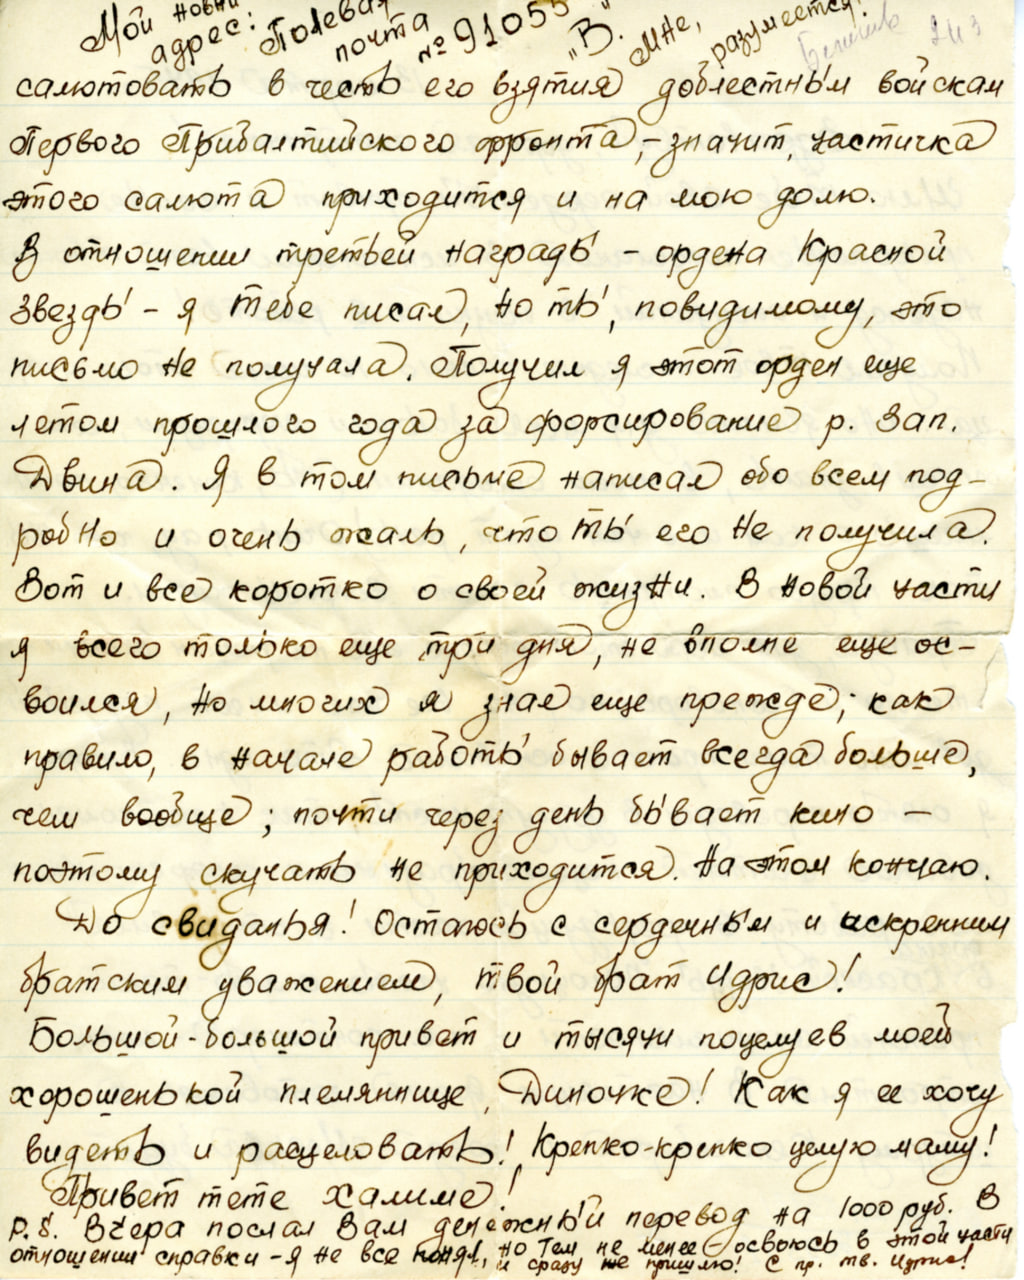 Мой новый адрес: Полевая почта № 91055 "В."
Мне, разумеется!
243
салютовать в честь его взятия доблестным войскам
Первого Прибалтийского фронта, – значит, частичка
этого салюта приходится и на мою долю.
В отношении третьей награды – ордена Красной
Звезды – я тебе писал, но ты, повидимому, это
письмо не получала. Получил я этот орден еще
летом прошлого года за форсирование р. Зап.
Двина. Я в том письме написал обо всем под-
робно и очень жаль, что ты его не получила.
Вот и все коротко о своей жизни. В новой части
я всего только еще три дня, не вполне еще ос-
воился, но многих я знал еще прежде; как
правило, в начале работы бывает всегда больше,
чем вообще; почти через день бывает кино –
поэтому скучать не приходится. На этом кончаю.
До свиданья! Остаюсь с сердечным и искренним
братским уважением, твой брат Идрис!
Большой-большой привет и тысячи поцелуев моей
хорошенькой племяннице, Диночке! Как я ее хочу
видеть и расцеловать! Крепко-крепко целую маму!
Привет тете Халиме!
P.S. Вчера послал Вам денежный перевод на 1000 руб. В
отношении справки – я не все понял, но тем не менее – освоюсь в этой части
и сразу же пришлю! С пр. тв. Идрис!